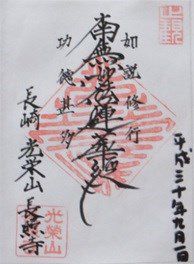 平成三十年九月一日
如説修行
南無妙法蓮華経
功徳甚多
長崎 光栄山 長照寺
光栄山